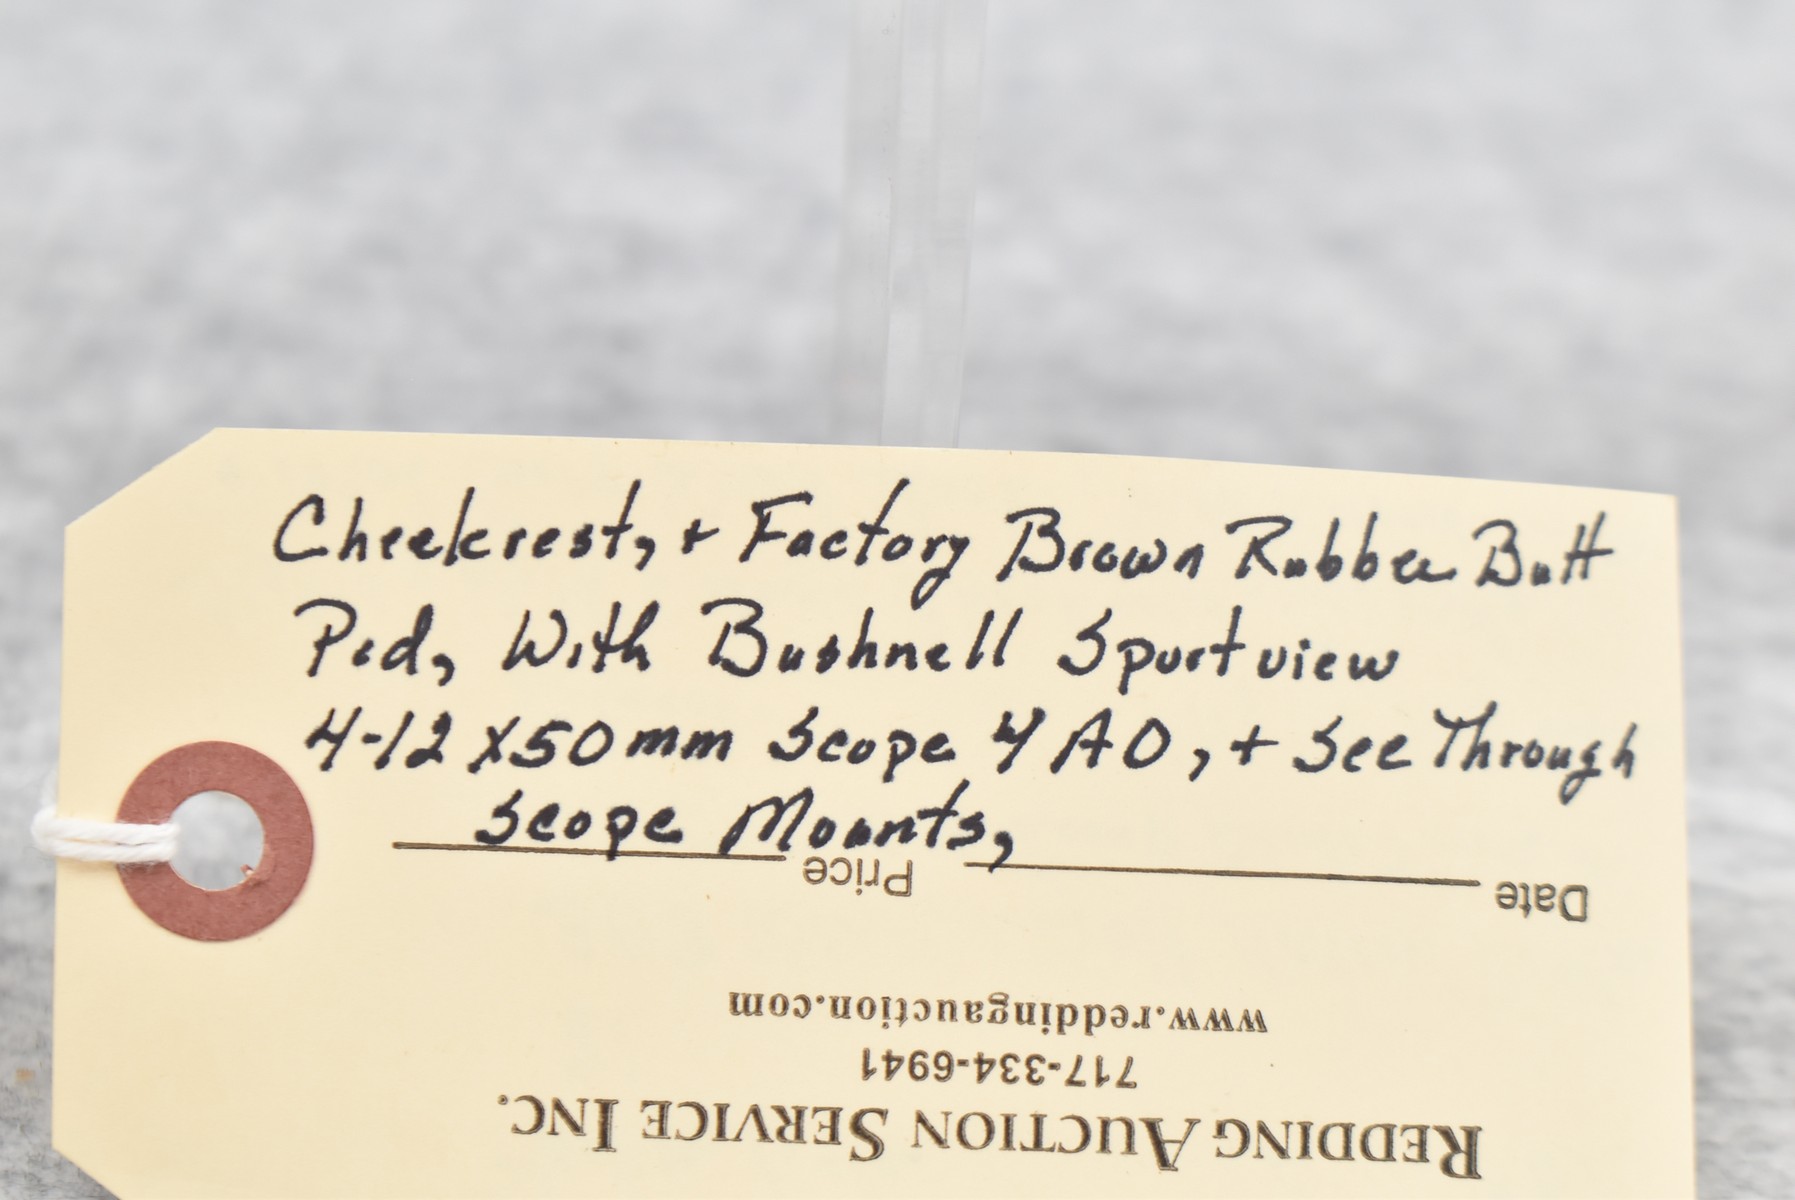 Cheekrest, + Factory Brown Rubber Butt
Pad, With Bushnell Sportview
4-12 x50mm Scope w/ AO, + See Through
Scope Mounts,
Price
Date
www.reddingauction.com
717-334-6941
REDDING AUCTION SERVICE INC.